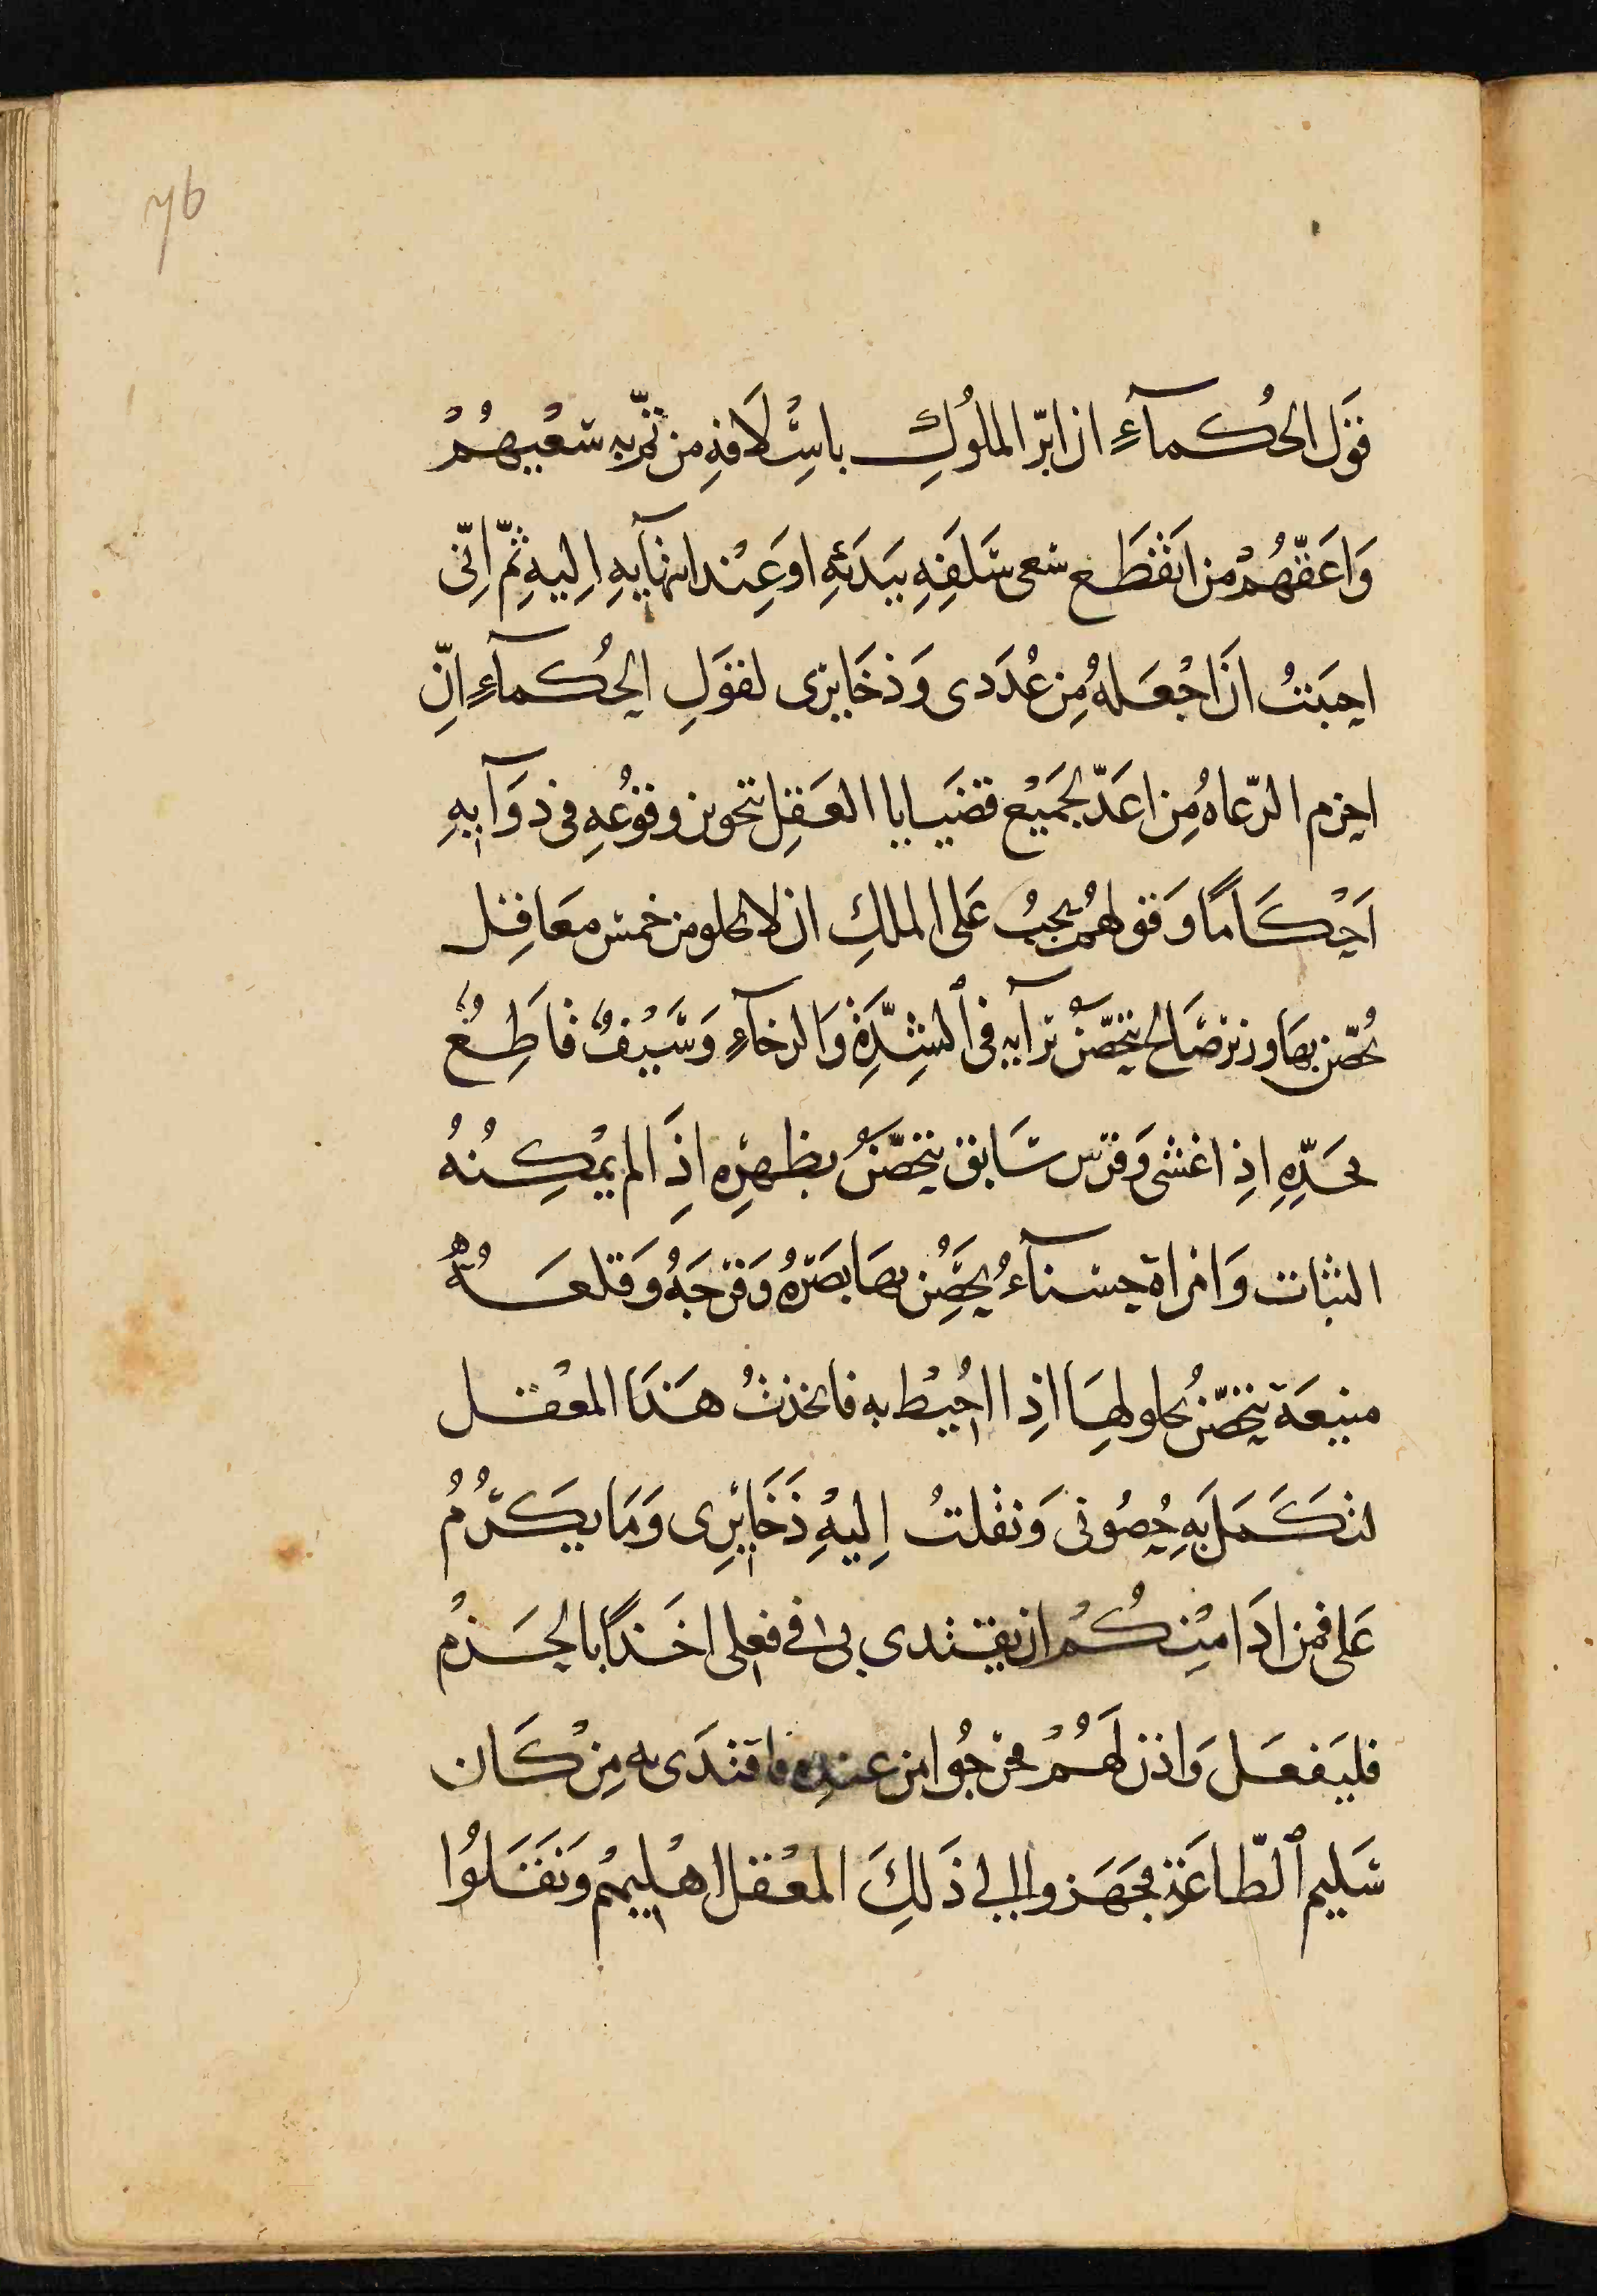 76
قول الحُكمآءِ ان ابرّ الملُوكِ باسْلَافهِ من تمّ به سَعْيهُمْ
وَاعَقّهُمْ من انقَطَع سَعى سَلَفِهِ بيَدَيْهِ اوعِنْد انتهآيهِ اِليهِ ثمّ انّى
احبَبتُ ان اَجْعَلهُ مِن عُدَدى وَذخَايرى لقوَلِ الحُكمآءِ انّ
احزم الرّعاهُ مِن اعَدّ لجَميْع قضَايا العَقِل بتحويز وقوُعهِ فى دوَآيهِ
اَحْكَامًا وَقولهُم يجبُ عَلى الملكِ ان لا يخلو من خمس معَاقِل
يحُصّن بهَا وزير صَالح يتحصّنُ برَآيه فى اُلشِدَّةِ وَالرخآءِ وَسَيْفٌ قاطِعٌ
بحَدِّهِ اذِ اغشى وَفرَس سَابق يتحصّنُ بظهِرْهِ اذَِ الم يمُكِنُهُ
الثبات وَامراة حسنآءُ يحَصُِن بهَا بصَرَهُ وَفرَجَهُ وَقلعَهُ
منيعَة يتحصّنُ بحلولهَِا اذِا احُيْط به فاتخذتُ هَذَا المعْقل
لتكَملَ بَهِ حِصُونى وَنقلتُ اِليهِْ ذَخَآئرِى وَمَا يكَرُمُ
عَلى فمن ارَادَ مِنكُم ان يقتدى بى فى فعلى اخَذًا بالحَزم
فليَفعَل وَاذن لَهُمْ فخرجُوا من عندِهِ فاقتدَى به مِن كَان
سَليم اُلطّاعَةِ فجَهَزوا الى ذَلِكَ المعْقل اهْليهمْ وَنقَلوُا